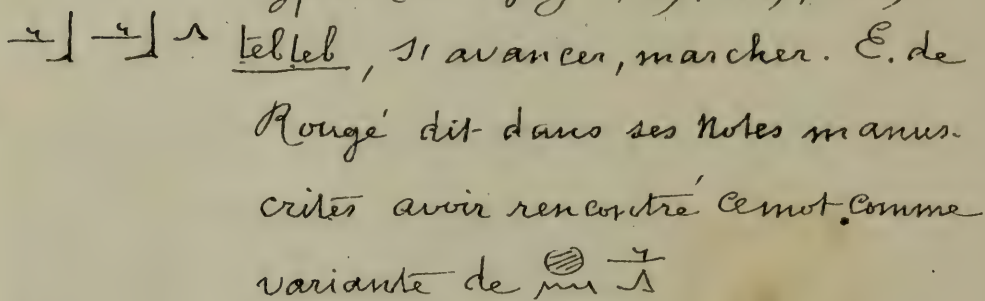 tebteb, s'avancer, marcher. E. de
Rougé dit dans ses Notes manus-
crites avoir rencontré ce mot comme
variante de